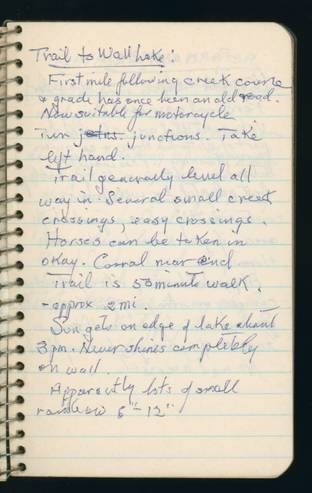 Trail to Wall Lake:
First mile following creek course
& grade has once been an old road.
Now suitable for motorcycle
Two junctions. Take
left hand.
Trail generally level all
way in. Several small creek
crossings, easy crossings.
Horses can be taken in
okay. Corral near end
Trail is 50 minute walk.
- approx 2 mi.
Sun gets on edge of lake about
3 pm. Never shines completely
on wall.
Apparently lots of small
rainbow 8"-12"